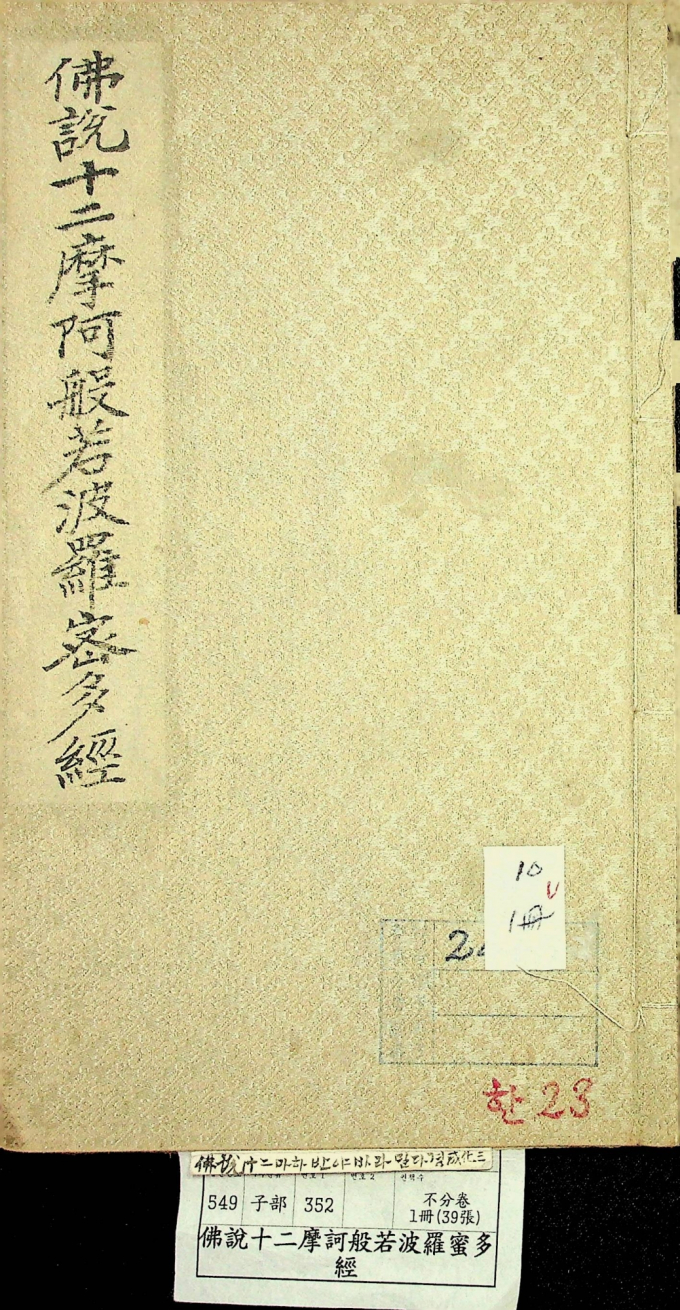 佛說十二摩阿般若波羅密多經
10
V
1冊
2
한 23
佛說十二마하반야바라밀다경 成化三
549 子部 352 不分卷
1冊(39張)
佛說十二摩訶般若波羅蜜多
經